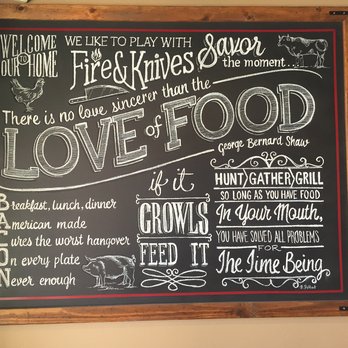 WELCOME
TO
OUR HOME
WE LIKE TO PLAY WITH
Fire & Knives
Savor
the moment...
There is no love sincerer than the
LOVE of FOOD
George Bernard Shaw
Breakfast, lunch, dinner
American made
Cures the worst hangover
On every plate
Never enough
if it
GROWLS
FEED IT
HUNT>GATHER>GRILL
SO LONG AS YOU HAVE FOOD
In Your Mouth,
YOU HAVE SOLVED ALL PROBLEMS
FOR
The Time Being